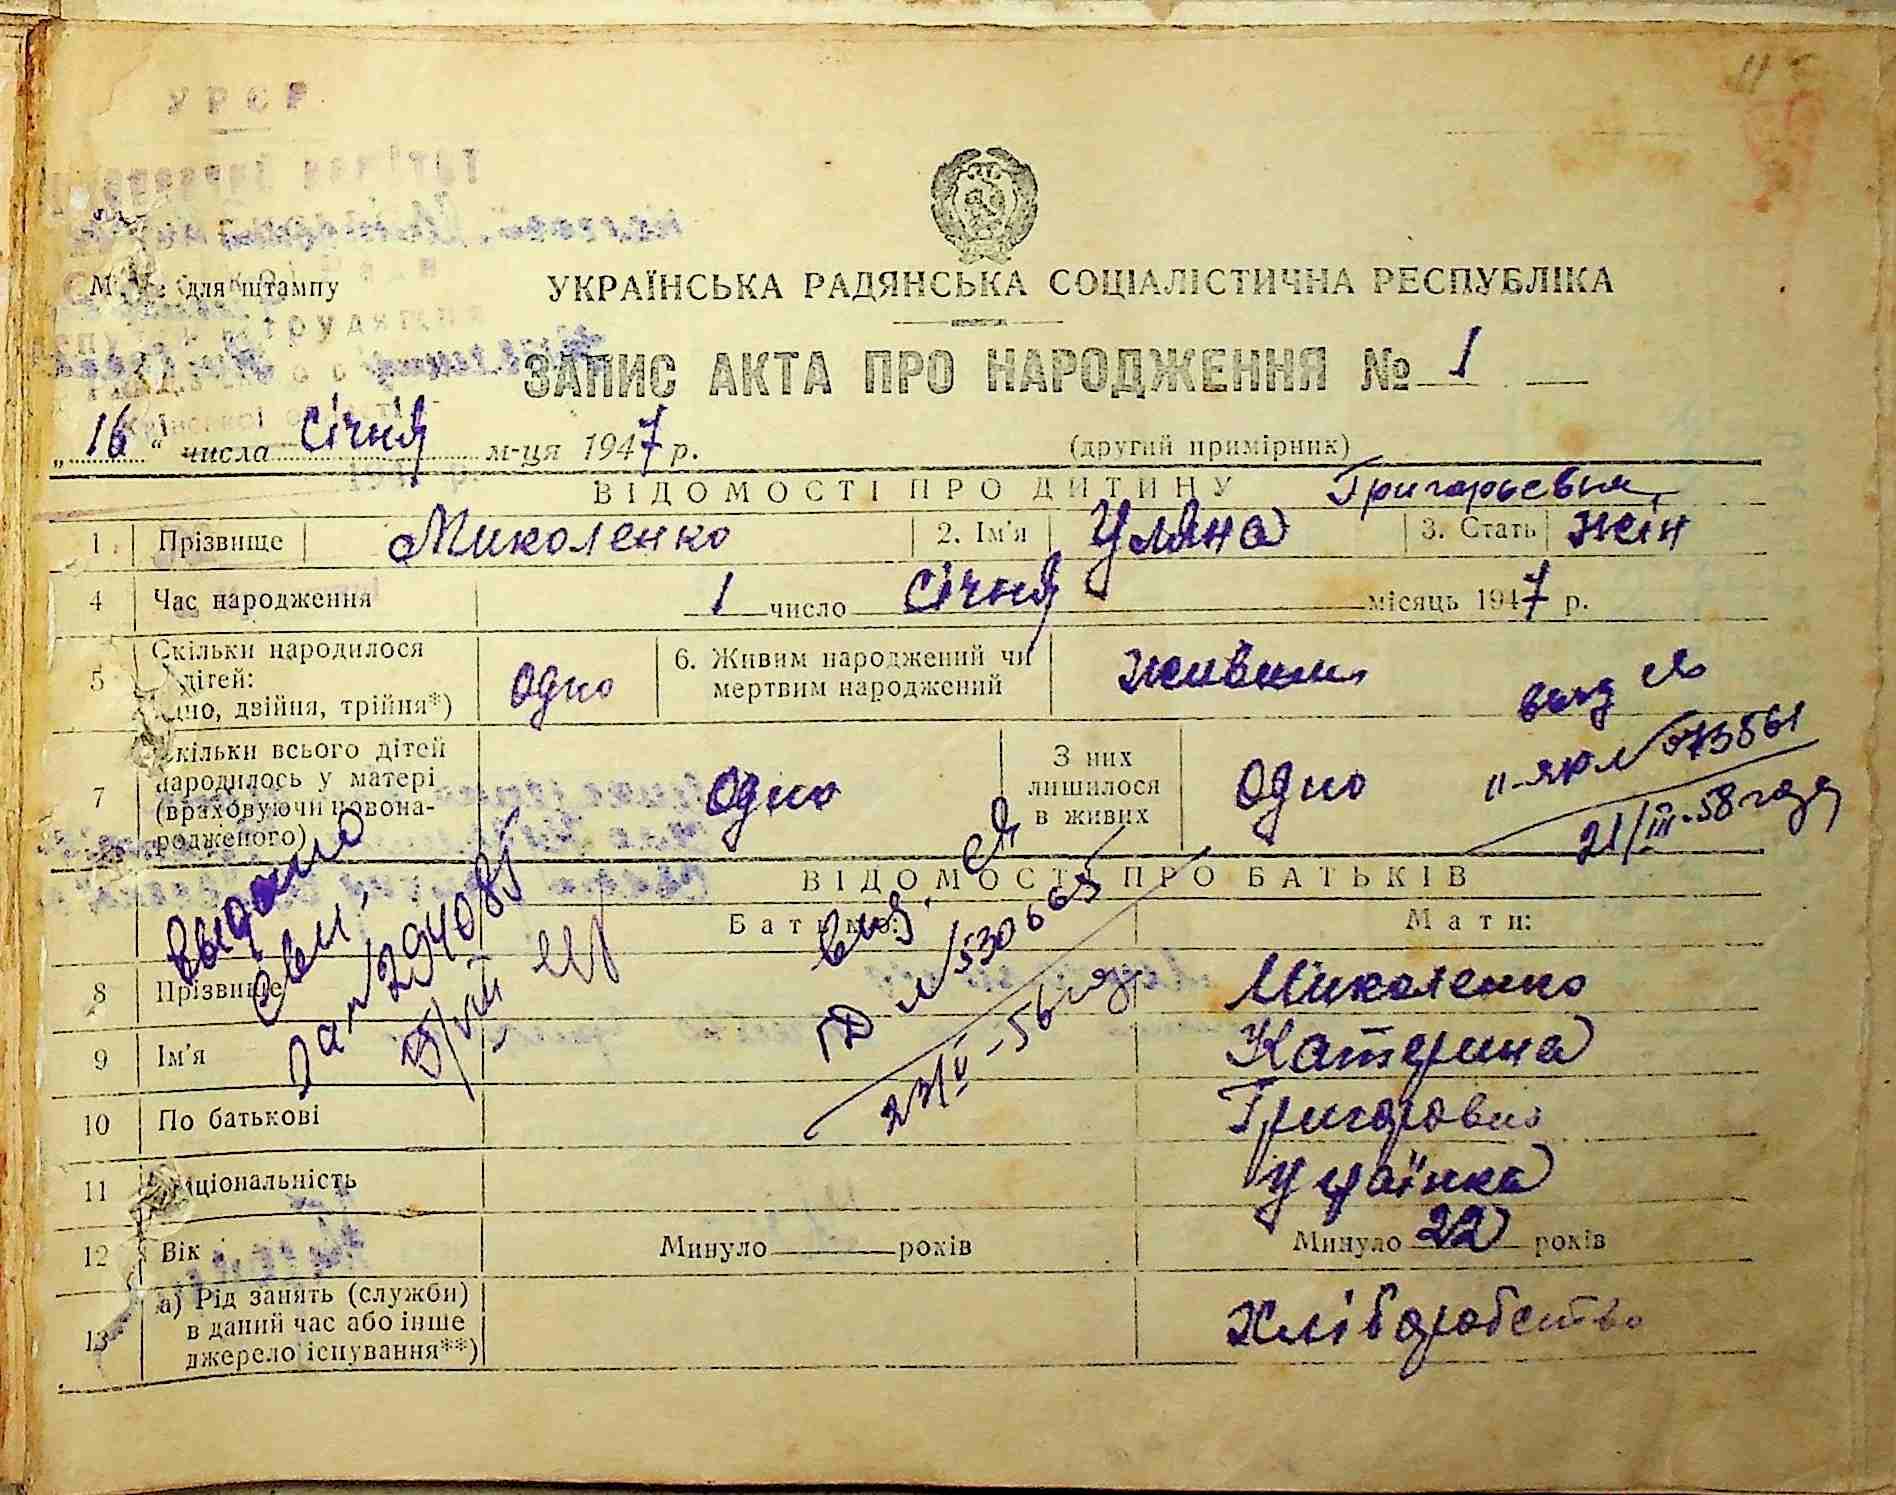 УРСР
Місце для штампу
УКРАЇНСЬКА РАДЯНСЬКА СОЦІАЛІСТИЧНА РЕСПУБЛІКА
ЗАПИС АКТА ПРО НАРОДЖЕННЯ № 1
„16“ числа Січня м-ця 1947 р. (другий примірник)
ВІДОМОСТІ ПРО ДИТИНУ Григорьевна
1 Прізвище Миколенко 2. Ім'я Уляна 3. Стать жін
4 Час народження 1 число Січня місяць 1947 р.
5 Скільки народилося дітей: одно, двійня, трійня*) Одно 6. Живим народжений чи мертвим народжений Живим
7 Скільки всього дітей народилось у матері (враховуючи новонародженого) Одно З них лишилося в живих Одно
II-ЯЮ № 073561
21/III-58 года
ВІДОМОСТІ ПРО БАТЬКІВ
Батько: Мати:
выдано
294085
№ 530665
23/V-56 год
8 Прізвище Миколенко
9 Ім'я Катерина
10 По батькові Григоровна
11 Національність Українка
12 Вік Минуло років Минуло 22 років
13 а) Рід занять (служби) в даний час або інше джерело існування**) Хліборобство